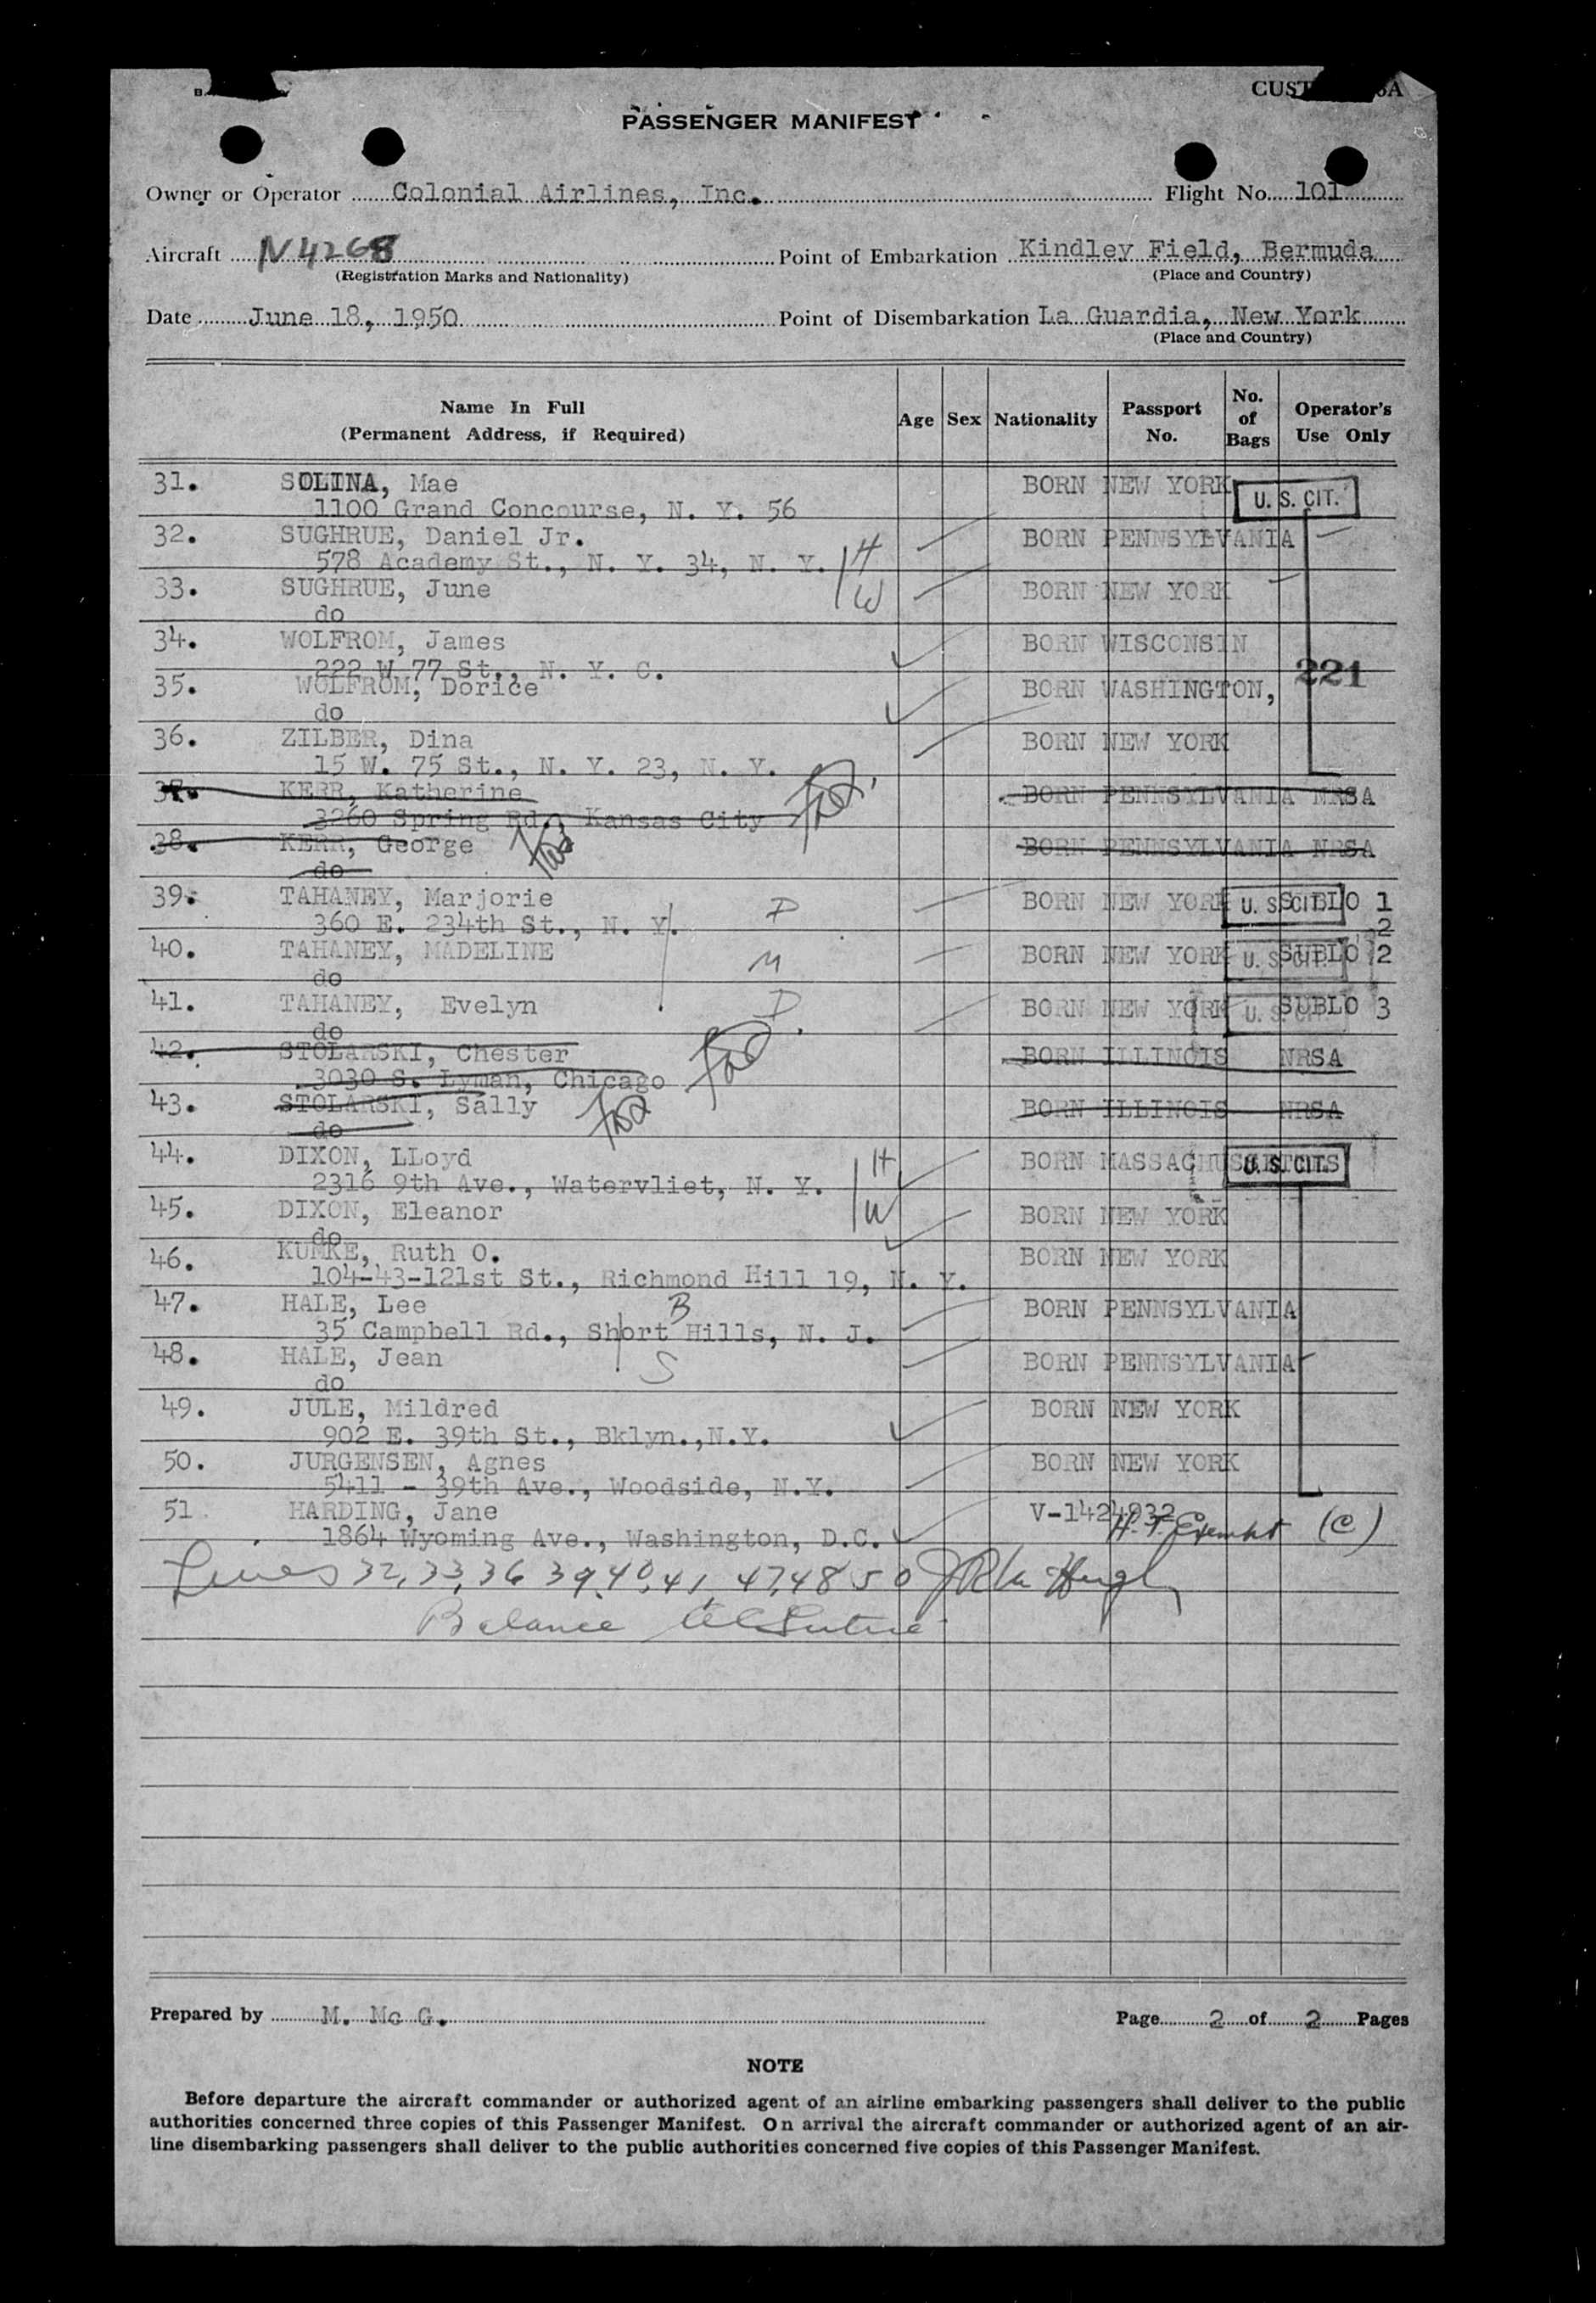 PASSENGER MANIFEST
Owner or Operator Colonial Airlines, Inc. Flight No. 101
Aircraft N4268 Point of Embarkation Kindley Field, Bermuda
(Registration Marks and Nationality) (Place and Country)
Date June 18, 1950 Point of Disembarkation La Guardia, New York
(Place and Country)
Name In Full (Permanent Address, if Required) Age Sex Nationality Passport No. No. of Bags Operator's Use Only
31. SOLINA, Mae BORN NEW YORK U. S. CIT.
1100 Grand Concourse, N. Y. 56
32. SUGHRUE, Daniel Jr. BORN PENNSYLVANIA
578 Academy St., N. Y. 34, N. Y. H
33. SUGHRUE, June W BORN NEW YORK
do
34. WOLFROM, James BORN WISCONSIN
222 W 77 St., N. Y. C. 221
35. WOLFROM, Dorice BORN WASHINGTON,
do
36. ZILBER, Dina BORN NEW YORK
15 W. 75 St., N. Y. 23, N. Y.
37. KERR, Katherine BORN PENNSYLVANIA NRSA
3260 Spring Rd., Kansas City
38. KERR, George BORN PENNSYLVANIA NRSA
do
39. TAHANEY, Marjorie D BORN NEW YORK U. S. CIT. SUBLO 1
360 E. 234th St., N. Y. 2
40. TAHANEY, MADELINE M BORN NEW YORK U. S. CIT. SUBLO 2
do
41. TAHANEY, Evelyn D. BORN NEW YORK U. S. CIT. SUBLO 3
do
42. STOLARSKI, Chester BORN ILLINOIS NRSA
3030 S. Lyman, Chicago
43. STOLARSKI, Sally BORN ILLINOIS NRSA
do
44. DIXON, LLoyd H BORN MASSACHUSSETTES U. S. CIT.
2316 9th Ave., Watervliet, N. Y.
45. DIXON, Eleanor W BORN NEW YORK
do
46. KUMKE, Ruth O. BORN NEW YORK
104-43-121st St., Richmond Hill 19, N. Y.
47. HALE, Lee B BORN PENNSYLVANIA
35 Campbell Rd., Short Hills, N. J.
48. HALE, Jean S BORN PENNSYLVANIA
do
49. JULE, Mildred BORN NEW YORK
902 E. 39th St., Bklyn.,N.Y.
50. JURGENSEN, Agnes BORN NEW YORK
5411 - 39th Ave., Woodside, N.Y.
51. HARDING, Jane V-1424932
1864 Wyoming Ave., Washington, D.C. H.T. Exempt (C)
Lines 32, 33, 36 39, 40, 41, 47, 48 50
Balance
Prepared by M. Mc G. Page 2 of 2 Pages
NOTE
Before departure the aircraft commander or authorized agent of an airline embarking passengers shall deliver to the public
authorities concerned three copies of this Passenger Manifest. On arrival the aircraft commander or authorized agent of an air-
line disembarking passengers shall deliver to the public authorities concerned five copies of this Passenger Manifest.